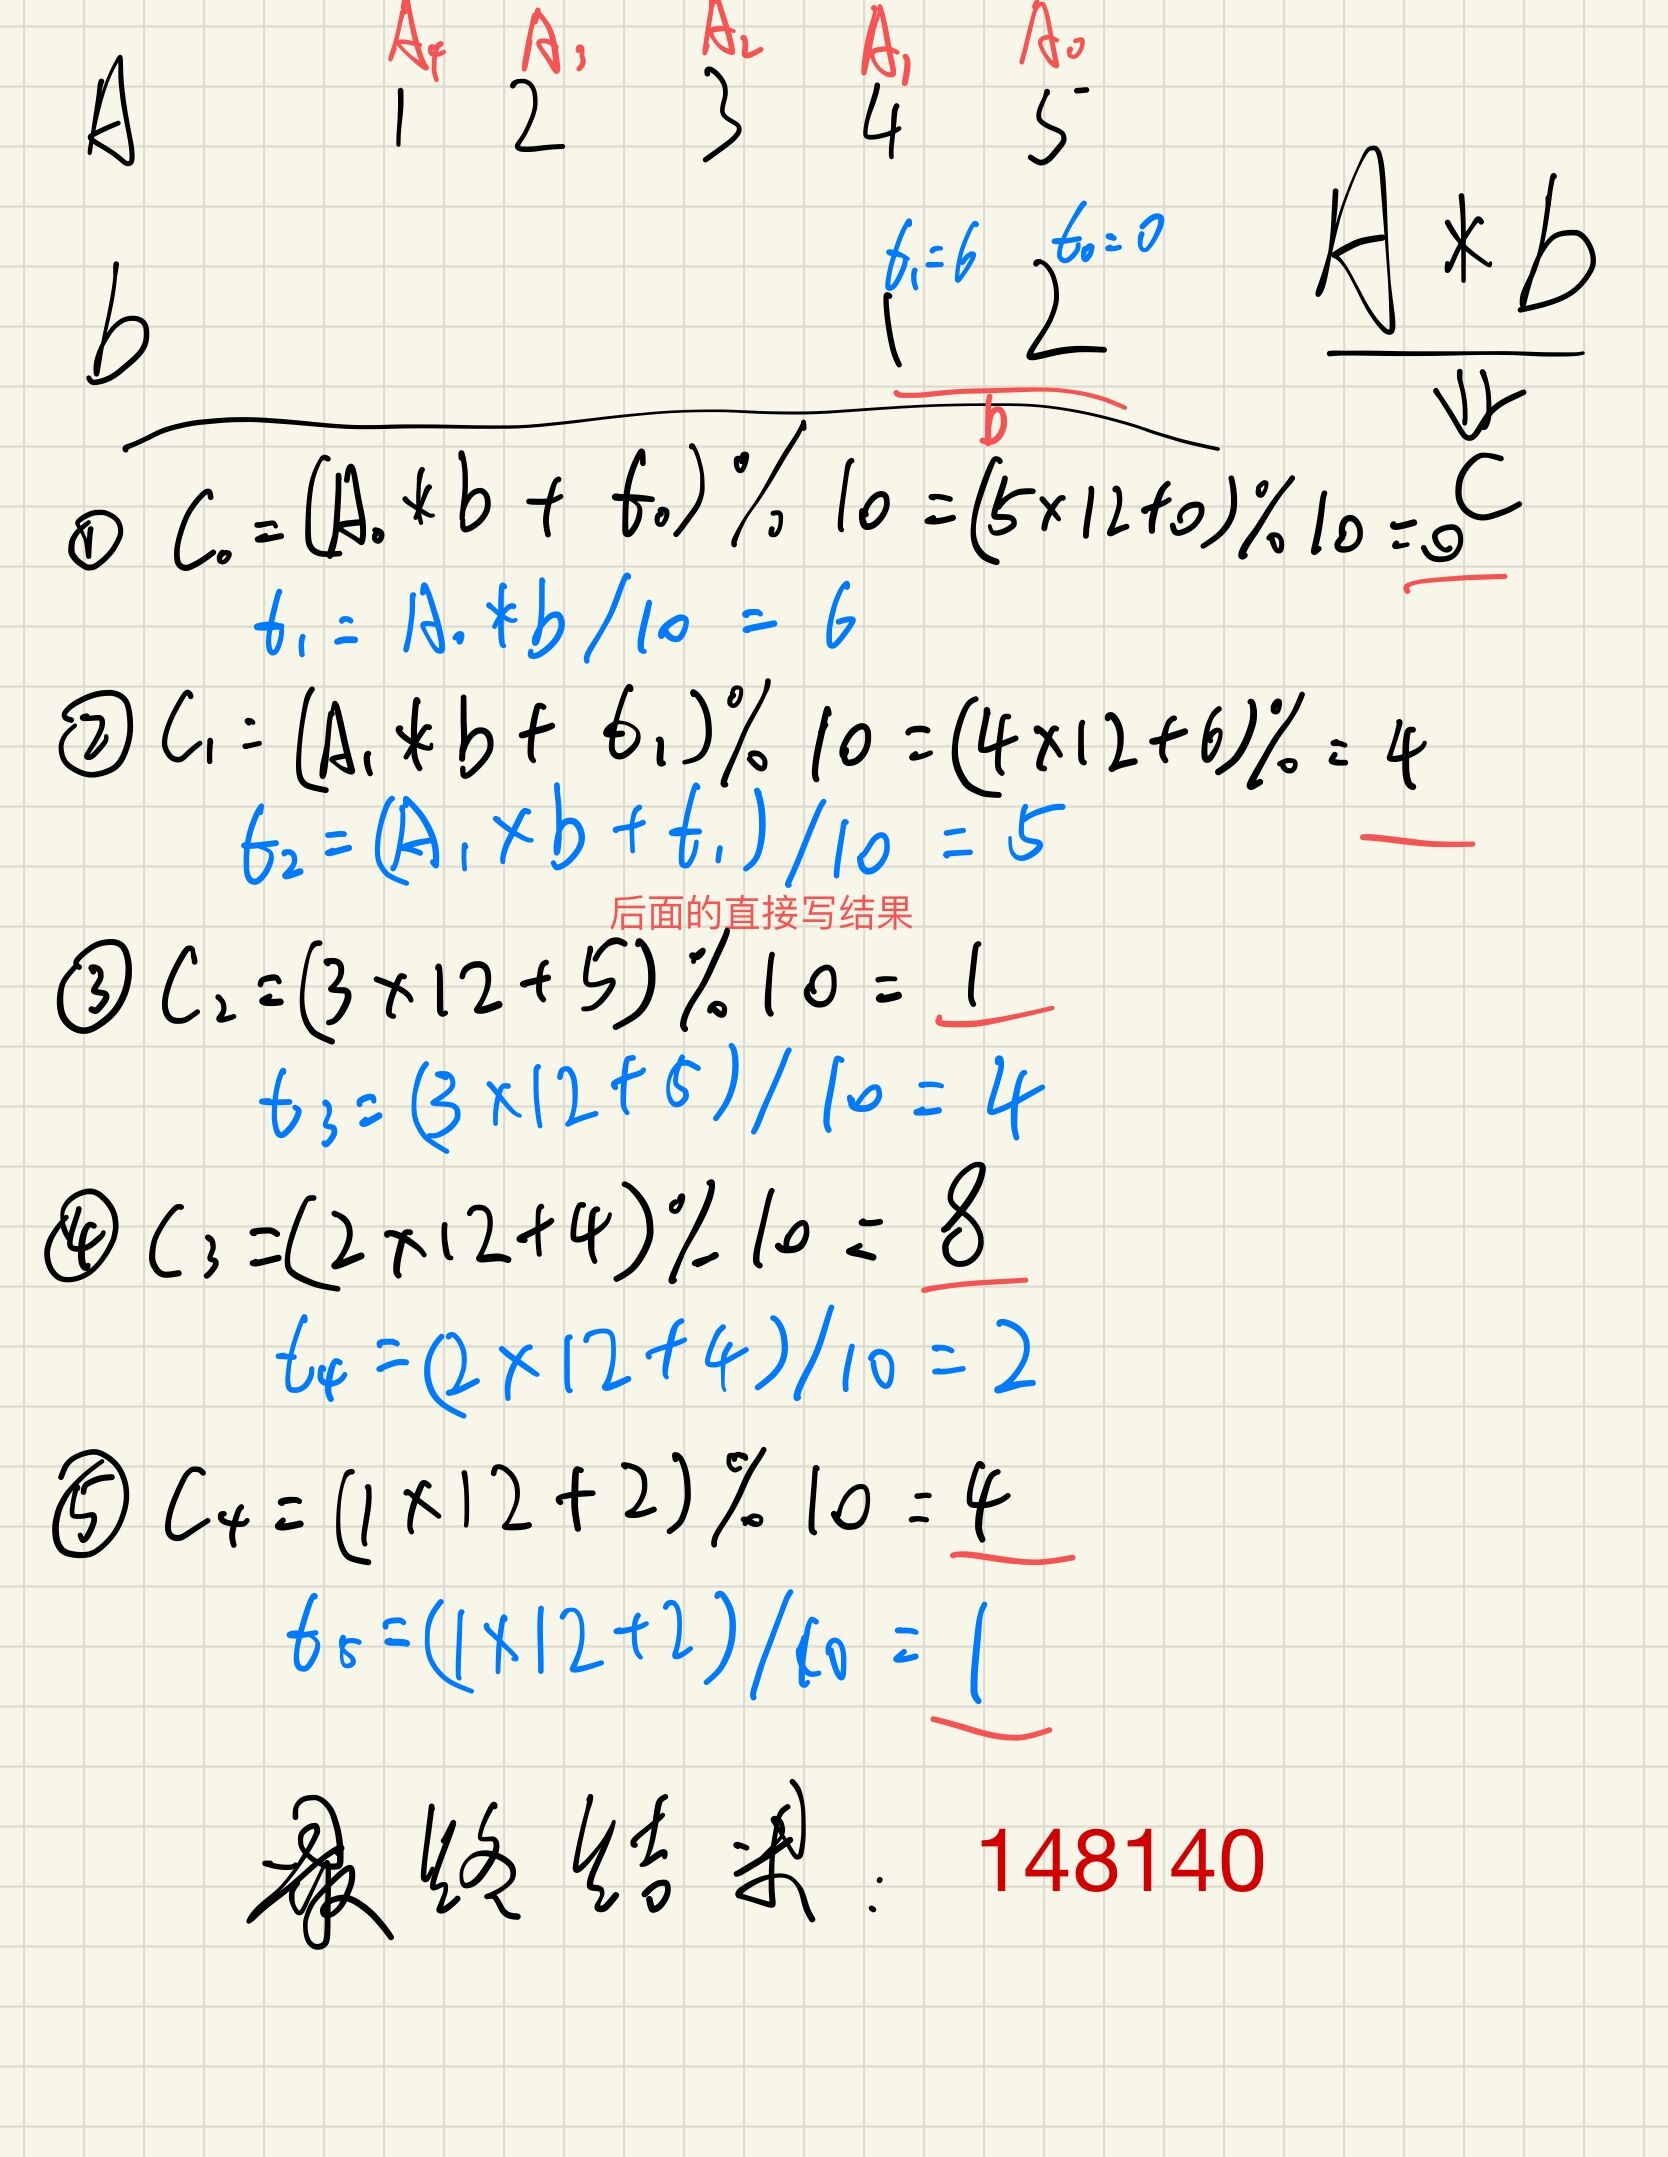 A₄ A₃ A₂ A₁ A₀
A 1 2 3 4 5
t₁=6 t₀=0
A * b
b 1 2
b
C
① C₀ = (A₀ * b + t₀) % 10 = (5×12+0) % 10 = 0
t₁ = A₀ * b / 10 = 6
② C₁ = (A₁ * b + t₁) % 10 = (4×12+6) % = 4
t₂ = (A₁ × b + t₁) / 10 = 5
后面的直接写结果
③ C₂ = (3×12+5) % 10 = 1
t₃ = (3×12+5) / 10 = 4
④ C₃ = (2×12+4) % 10 = 8
t₄ = (2×12+4) / 10 = 2
⑤ C₄ = (1×12+2) % 10 = 4
t₅ = (1×12+2) / 10 = 1
最终结果: 148140